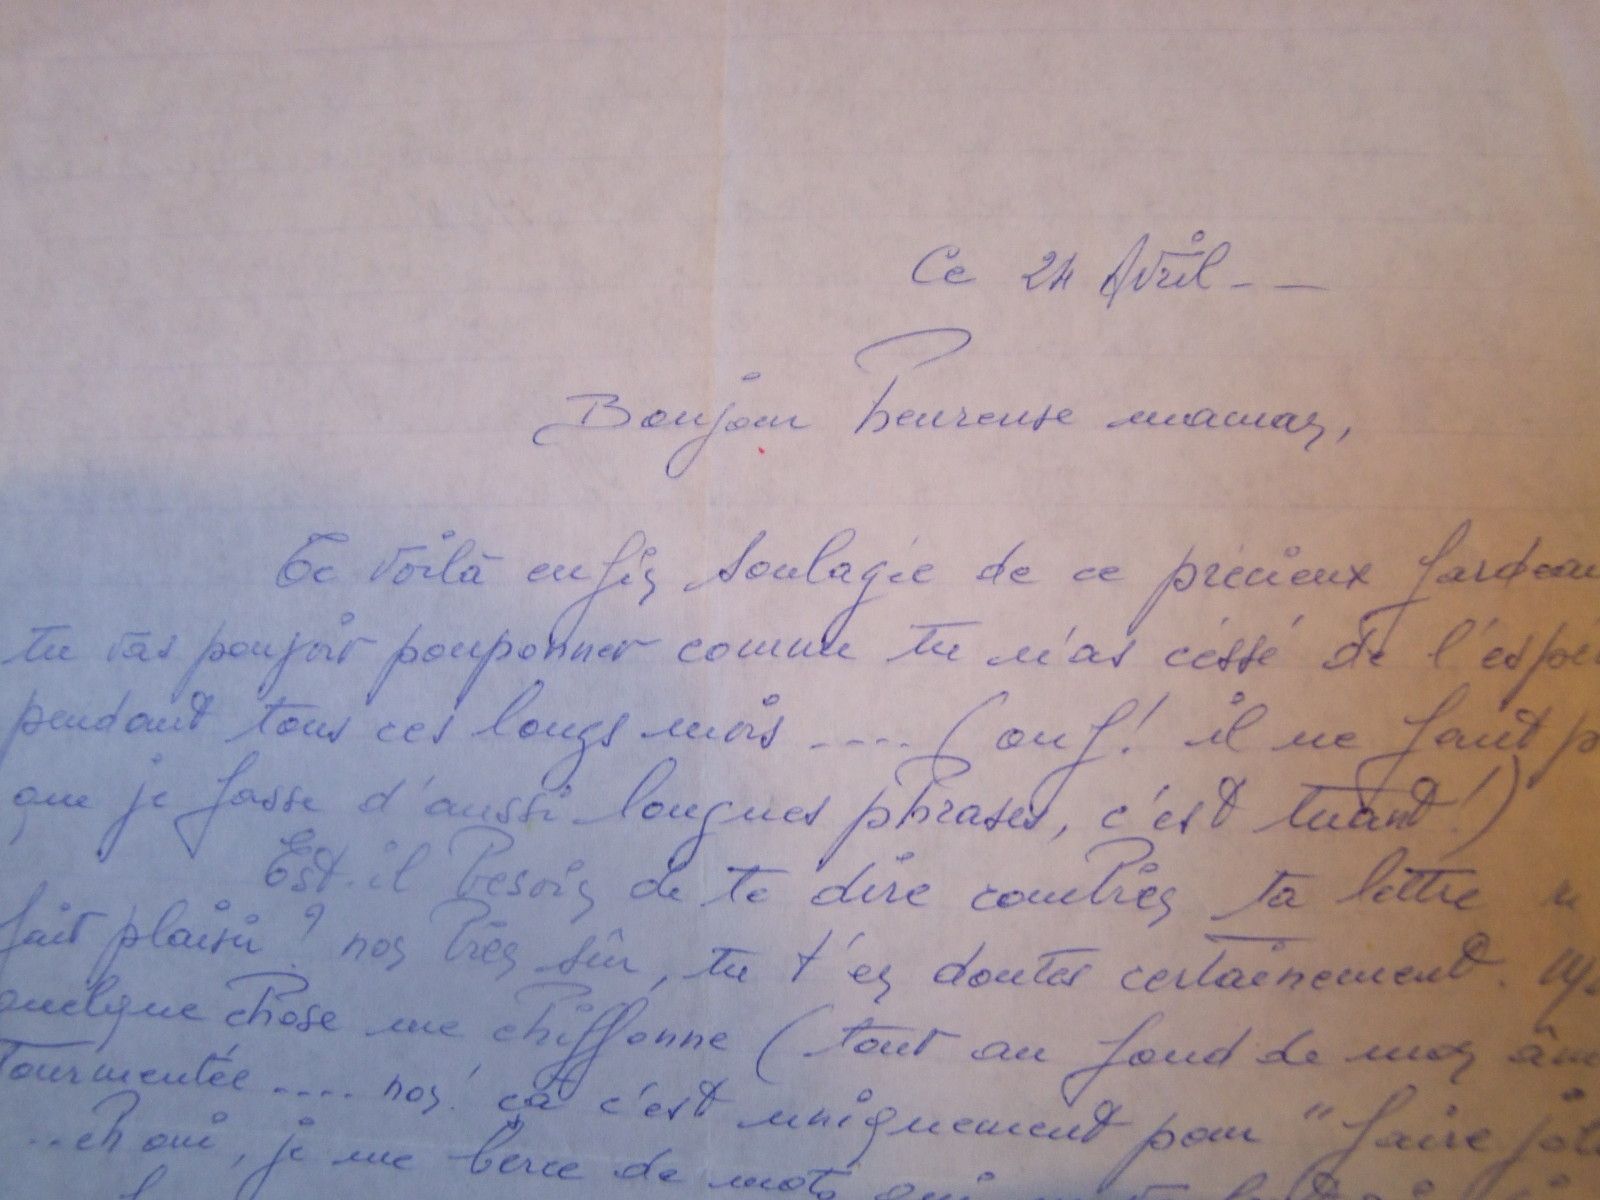 Ce 24 Avril - -
Bonjour heureuse maman,
Te voilà enfin soulagée de ce précieux fardeau
tu vas pouvoir pouponner comme tu n'as cessé de l'espé
pendant tous ces longs mois .... (ouf! il ne faut p
que je fasse d'aussi longues phrases, c'est tuant!)
Est-il besoin de te dire combien ta lettre
fait plaisir? non bien sûr, tu t'en doutes certainement.
quelque chose me chiffonne (tout au fond de mon âm
tourmentée .... non! ça c'est uniquement pour "faire joli
..eh oui, je me berce de mots qui